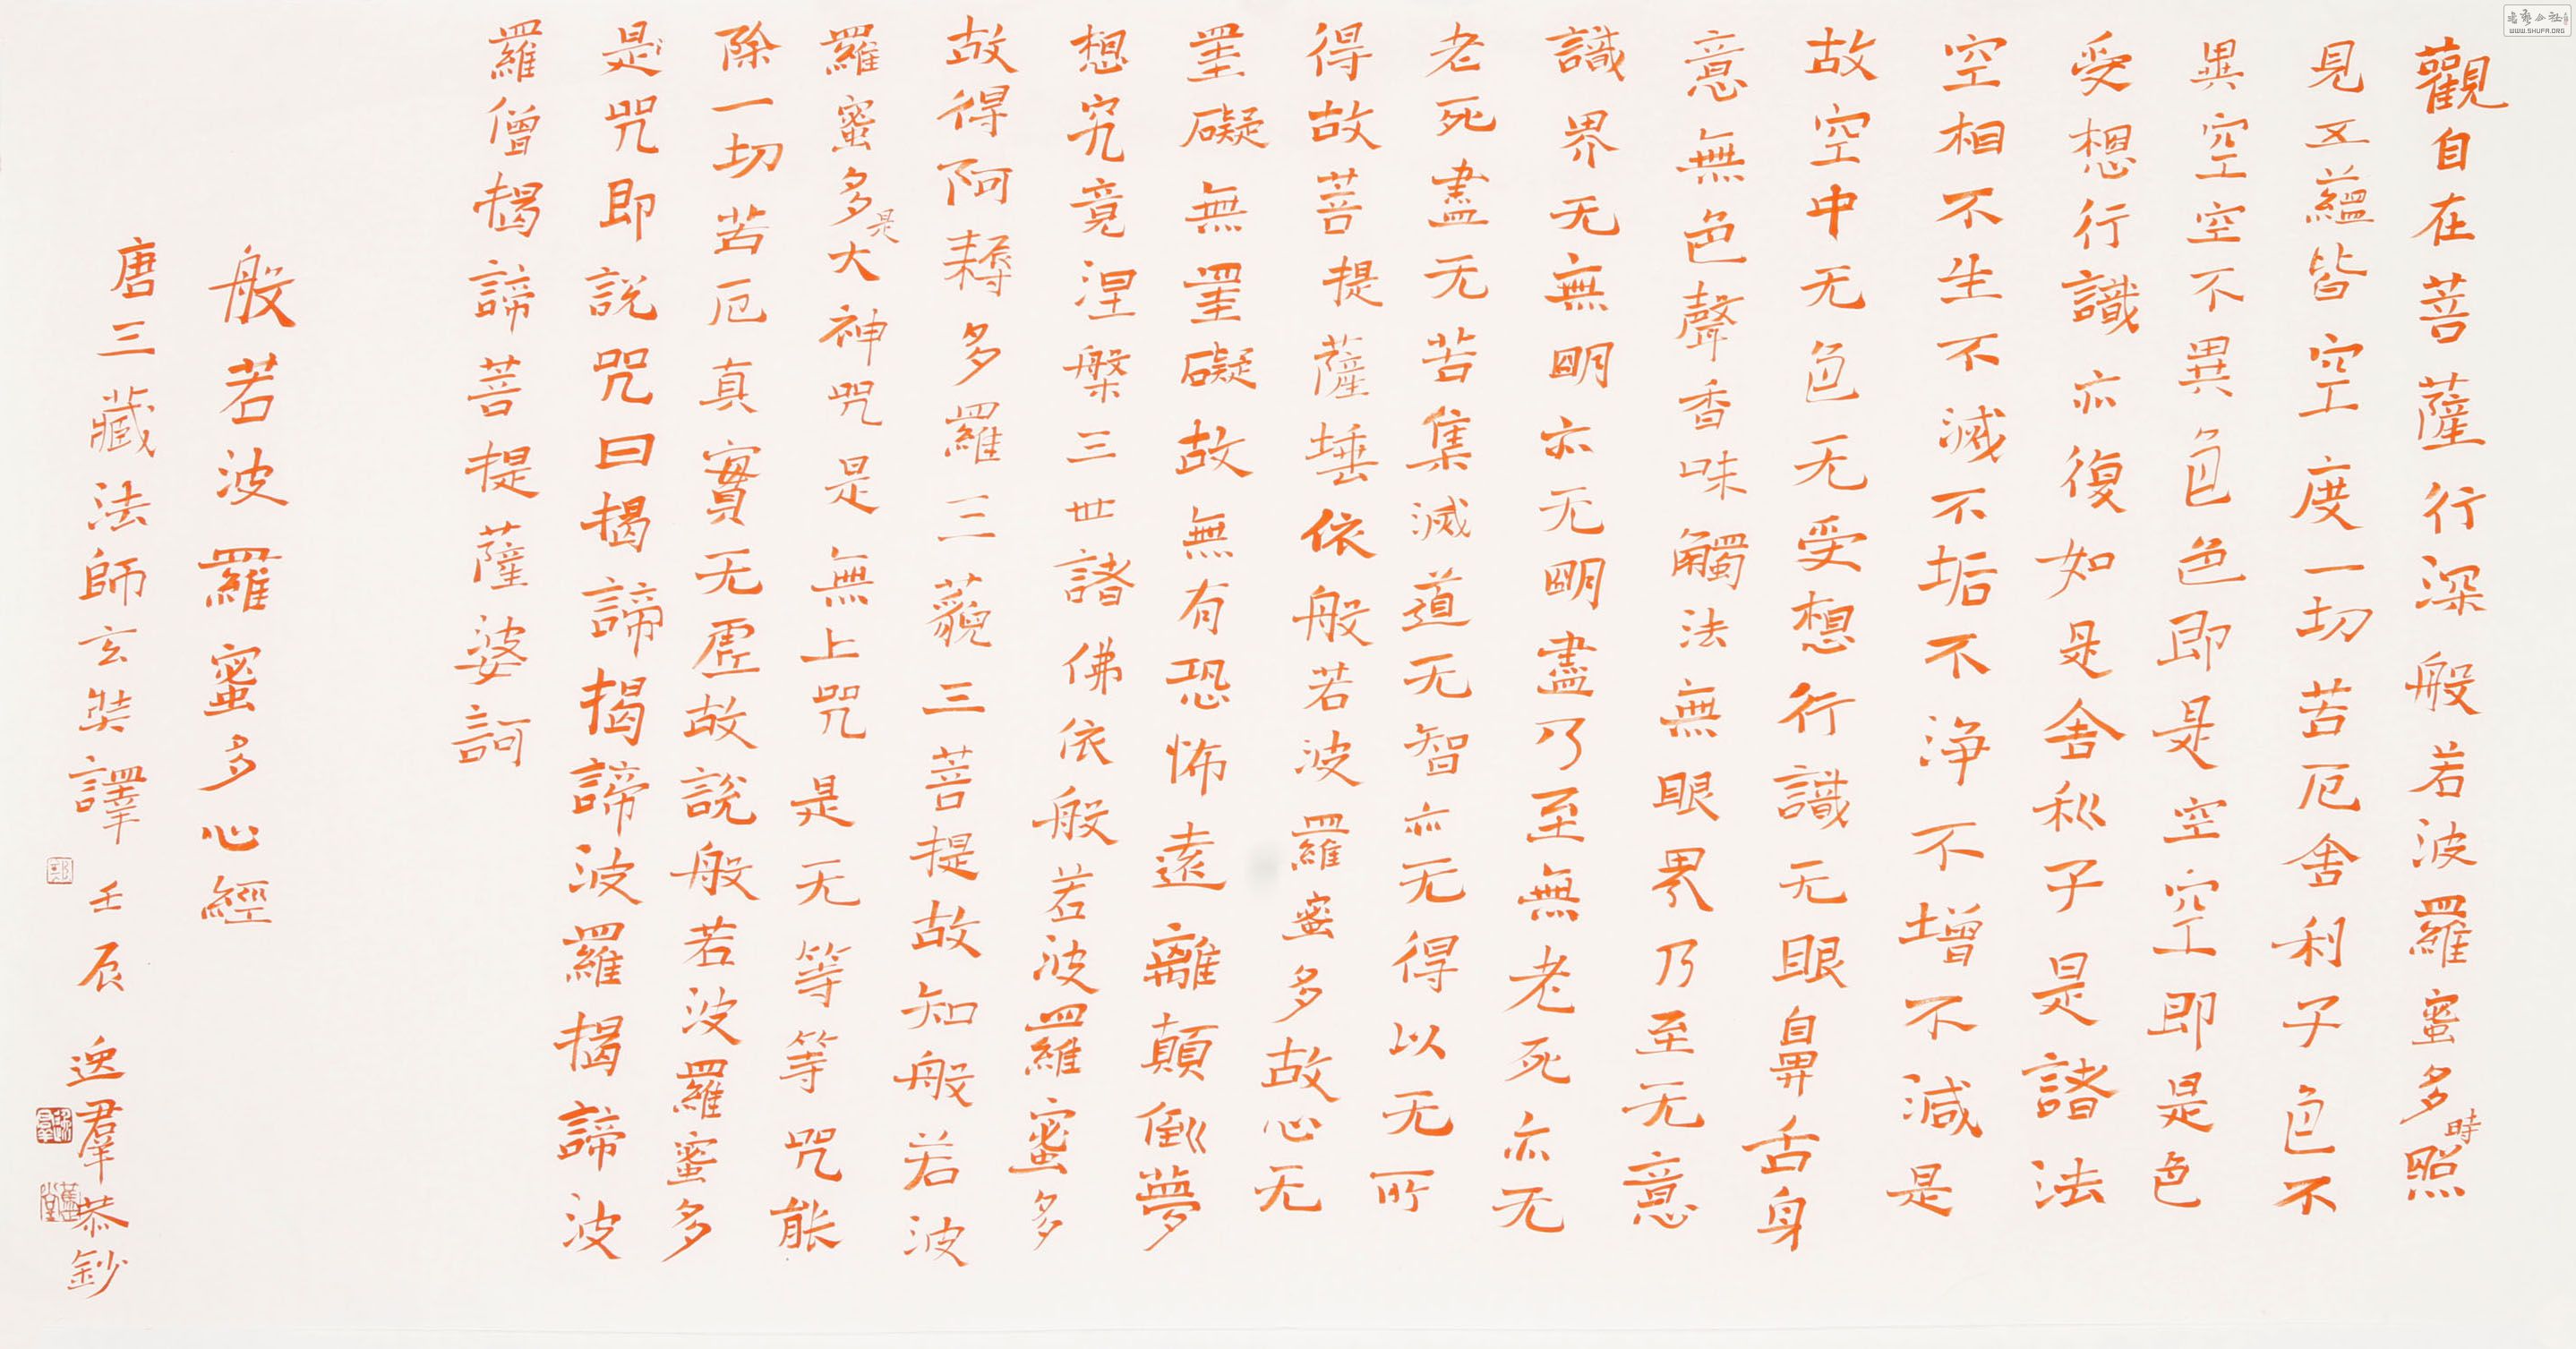 觀自在菩薩行深般若波羅蜜多時照
見五蘊皆空度一切苦厄舍利子色不
異空空不異色色即是空空即是色
受想行識亦復如是舍利子是諸法
空相不生不滅不垢不淨不增不減是
故空中无色无受想行識无眼鼻舌身
意無色聲香味觸法無眼界乃至无意
識界无無明亦无明盡乃至無老死亦无
老死盡无苦集滅道无智亦无得以无所
得故菩提薩埵依般若波羅蜜多故心无
罣礙無罣礙故無有恐怖遠離顛倒夢
想究竟涅槃三世諸佛依般若波羅蜜多
故得阿耨多羅三藐三菩提故知般若波
羅蜜多是大神咒是無上咒是无等等咒能
除一切苦厄真實无虛故說般若波羅蜜多
是咒即說咒曰揭諦揭諦波羅揭諦波
羅僧揭諦菩提薩婆訶
般若波羅蜜多心經
唐三藏法師玄奘譯 壬辰 逸羣恭鈔
WWW.SHUFA.ORG